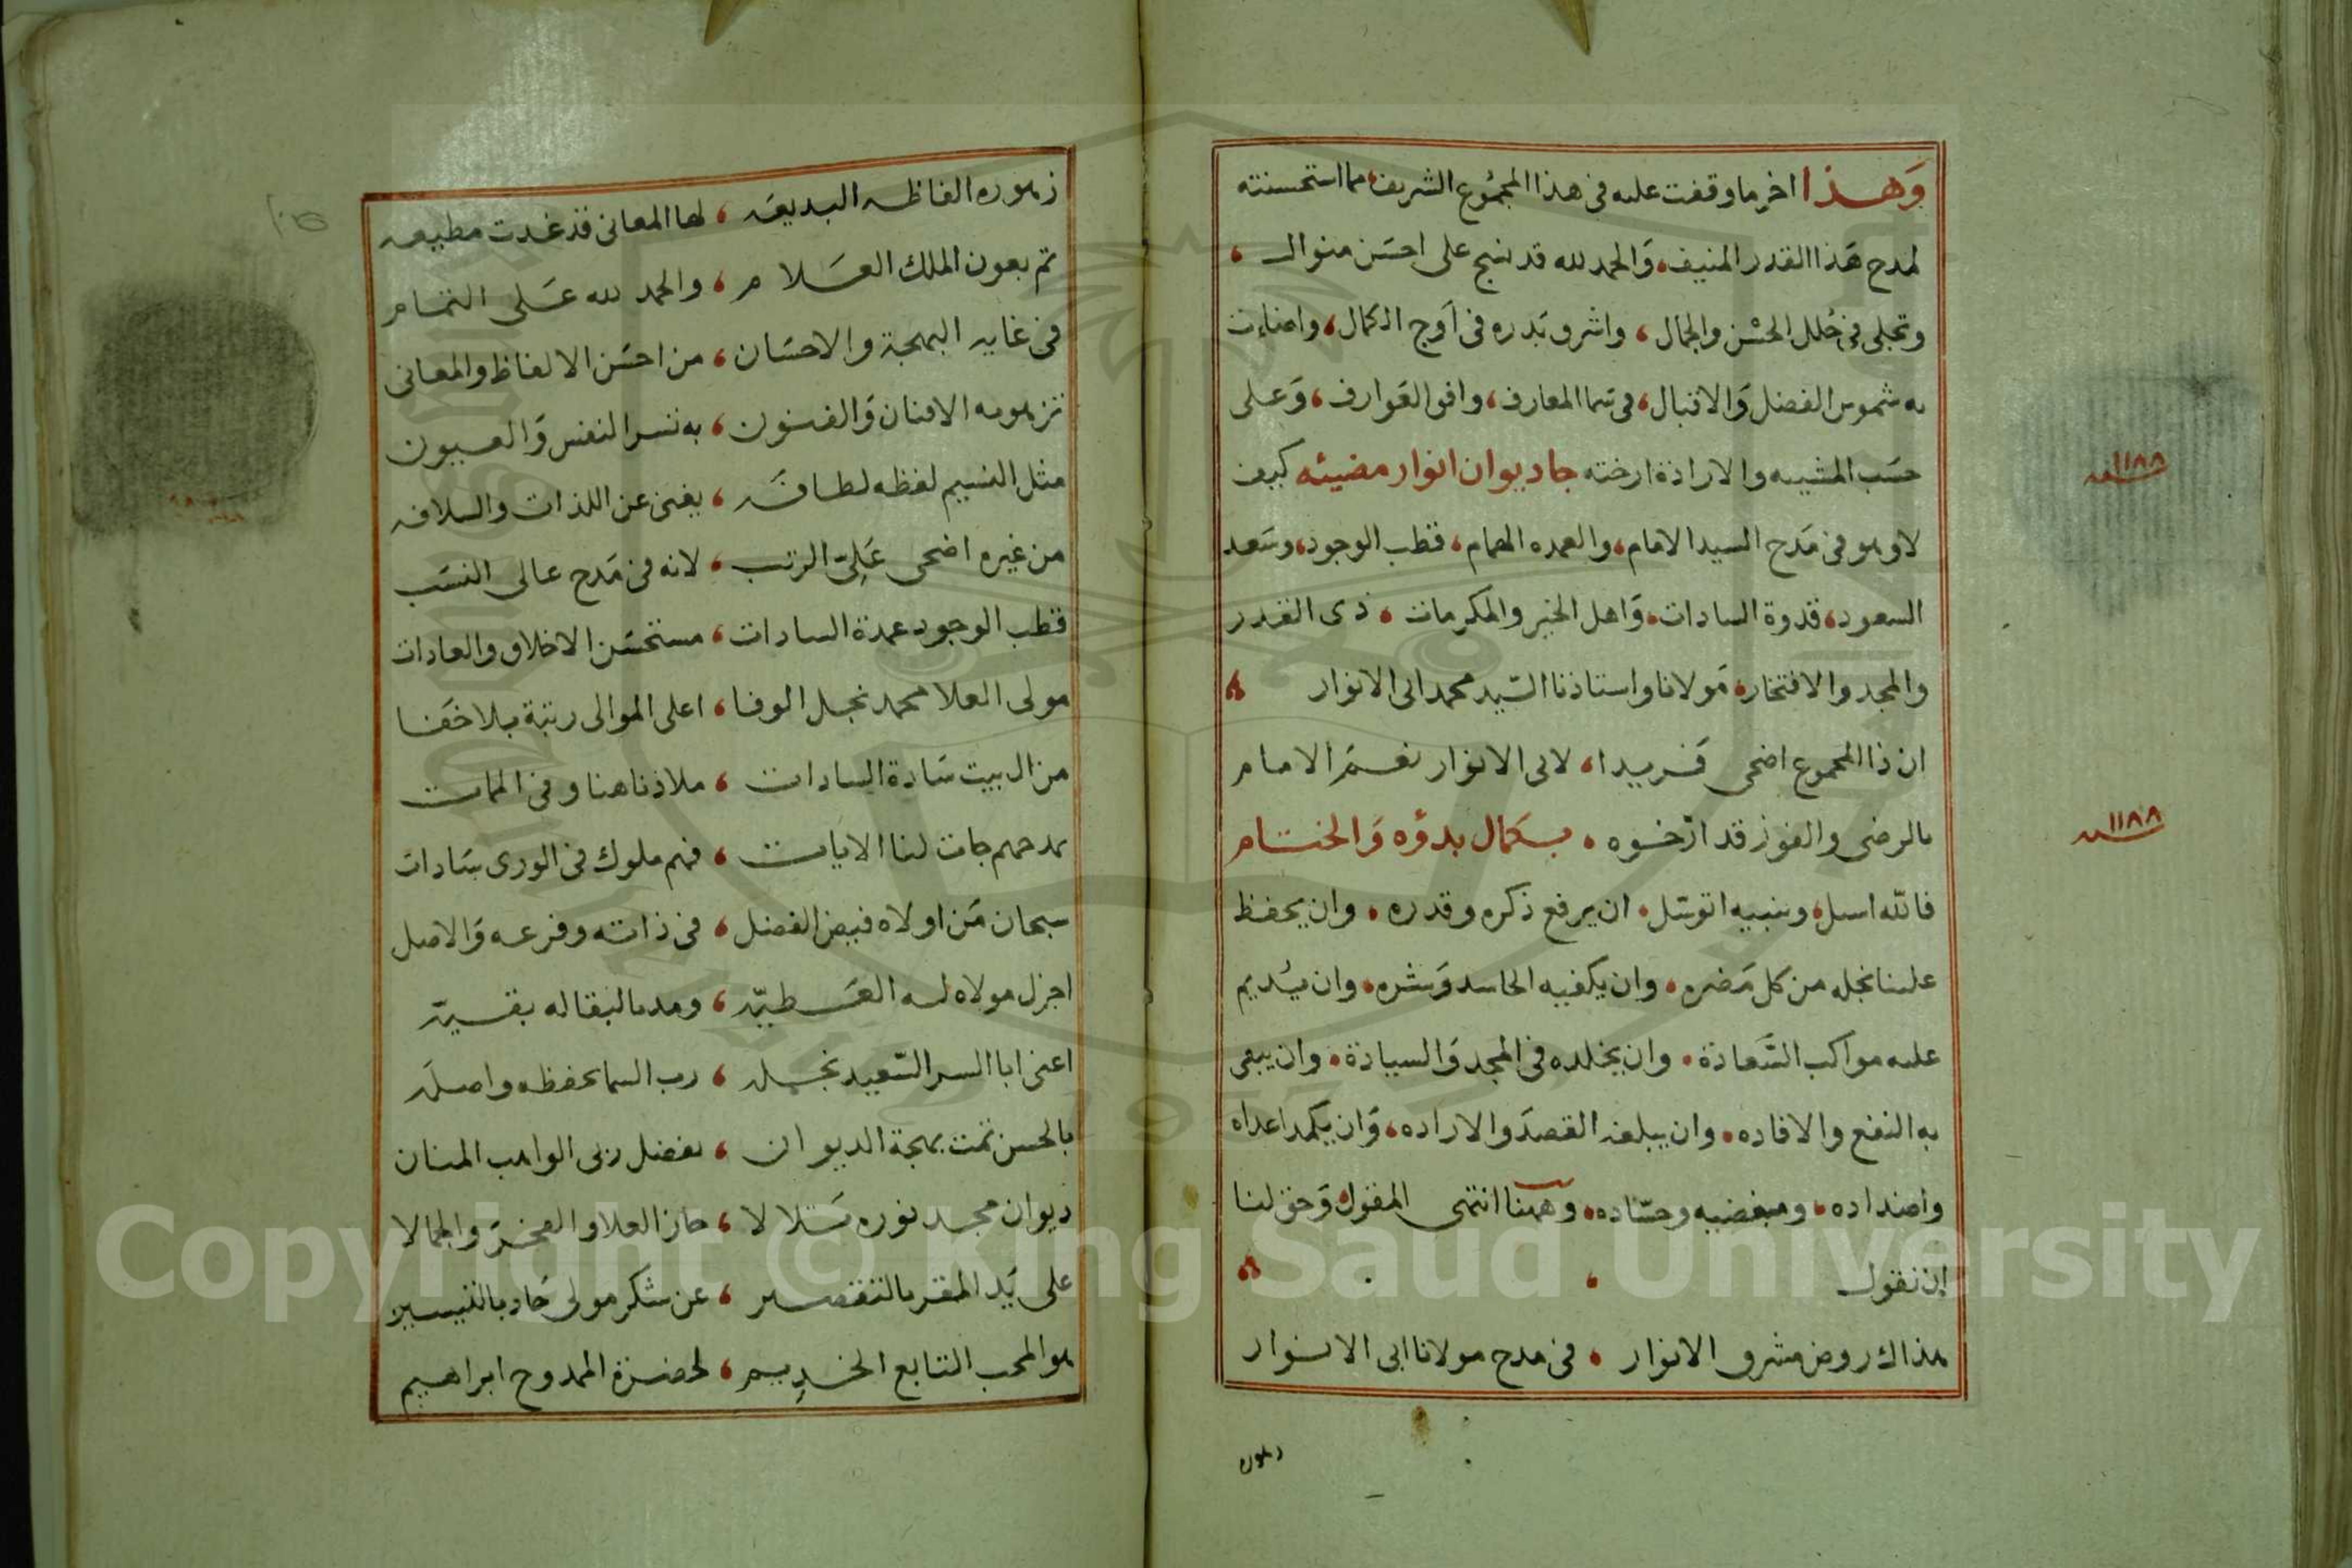 وَهذا اخر ما وقفت عليه فى هذا المجموع الشريف، مما استحسنته
لمدح هَذا القدر المنيف، وَالحمد لله قد نسج على احسَن منوال ،
وتجلى فى حُلل الحسْن والجمال ، واشرق بَدره فى اَوج الكمال، واضاءت
به شموس الفضل وَالاقبال، فى سما المعارف، وافق العَوارف، وَعلى
حسَب المشيه والارادة ارخته جا ديوان انوار مضيئه كيف
سنه ١١٨٨
لا وهو فى مَدح السيد الامام، والعمده الهمام، قطب الوجود، وسَعد
السعود، قدوة السادات، وَاهل الخير والمكرمات ، ذى القدر
والمجد والافتخار، مَولانا واستاذنا السّيد محمد ابى الانوار
ان ذا المجموع اضحى فَريدا، لابى الانوار نعم الامام
بالرضى والفوز قد ارّخوه ، بكمال بدؤه وَالختام
سنه ١١٨٨
فاللّه اسل، وبنبيه اتوسّل، ان يرفع ذكره وقدره ، وان يحفظ
علينا نجله من كل مَضره، وان يكفيه الحاسد وَشره، وان يُديم
عليه مواكب السَّعادة، وان يخلده فى المجد وَالسيادة، وان يبقى
به النفع والافاده، وان يبلغه القصدَ والاراده، وَان يكمد اعداه
واضداده، ومبغضيه وحسّاده، وَههنا انتهى المقول، وَحق لنا
ان نقول
هذاك روض مشرق الانوار ، فى مدح مولانا ابى الانوار
زهوره
زهوره الفاظه البديعَه ، لها المعانى قد غدت مطيعه
تم بعون الملك العَلام ، والحمد لله عَلى التمام
فى غايه البهجة والاحسَان ، من احسَن الالفاظ والمعانى
تزهو به الافنان وَالفنون ، به تسر النفس وَالعيون
مثل النسيم لفظه لطافَه ، يغنى عن اللذات والسلافه
من غيره اضحى عَلِىّ الرتب ، لانه فى مَدح عالى النسَب
قطب الوجود عمدة السادات ، مستحسَن الاخلاق والعادات
مولى العلا محمد نجل الوفا ، اعلى الموالى رتبة بلا خفَا
من ال بيت سَادة السادات ، ملاذنا هنا وفى الممات
بمدحهم جات لنا الايات ، فهم ملوك فى الورى سَادات
سبحان مَن اولاه فيض الفضل ، فى ذاته وفرعه وَالاصل
اجزل مولاه له العَطيّه ، ومد بالبقا له بقيّه
اعنى ابا السر السّعيد نجله ، رب السما يحفظه واصلَه
بالحسن تمت بهجة الديوان ، بفضل ربى الواهب المنان
ديوان مجد نوره تَلالا ، حاز العلا والفخرَ والجمالا
على يَد المقر بالتقصير ، عن شكر مولى جَاد بالتيسير
هو المحب التابع الخديم ، لحضرة الممدوح ابراهيم